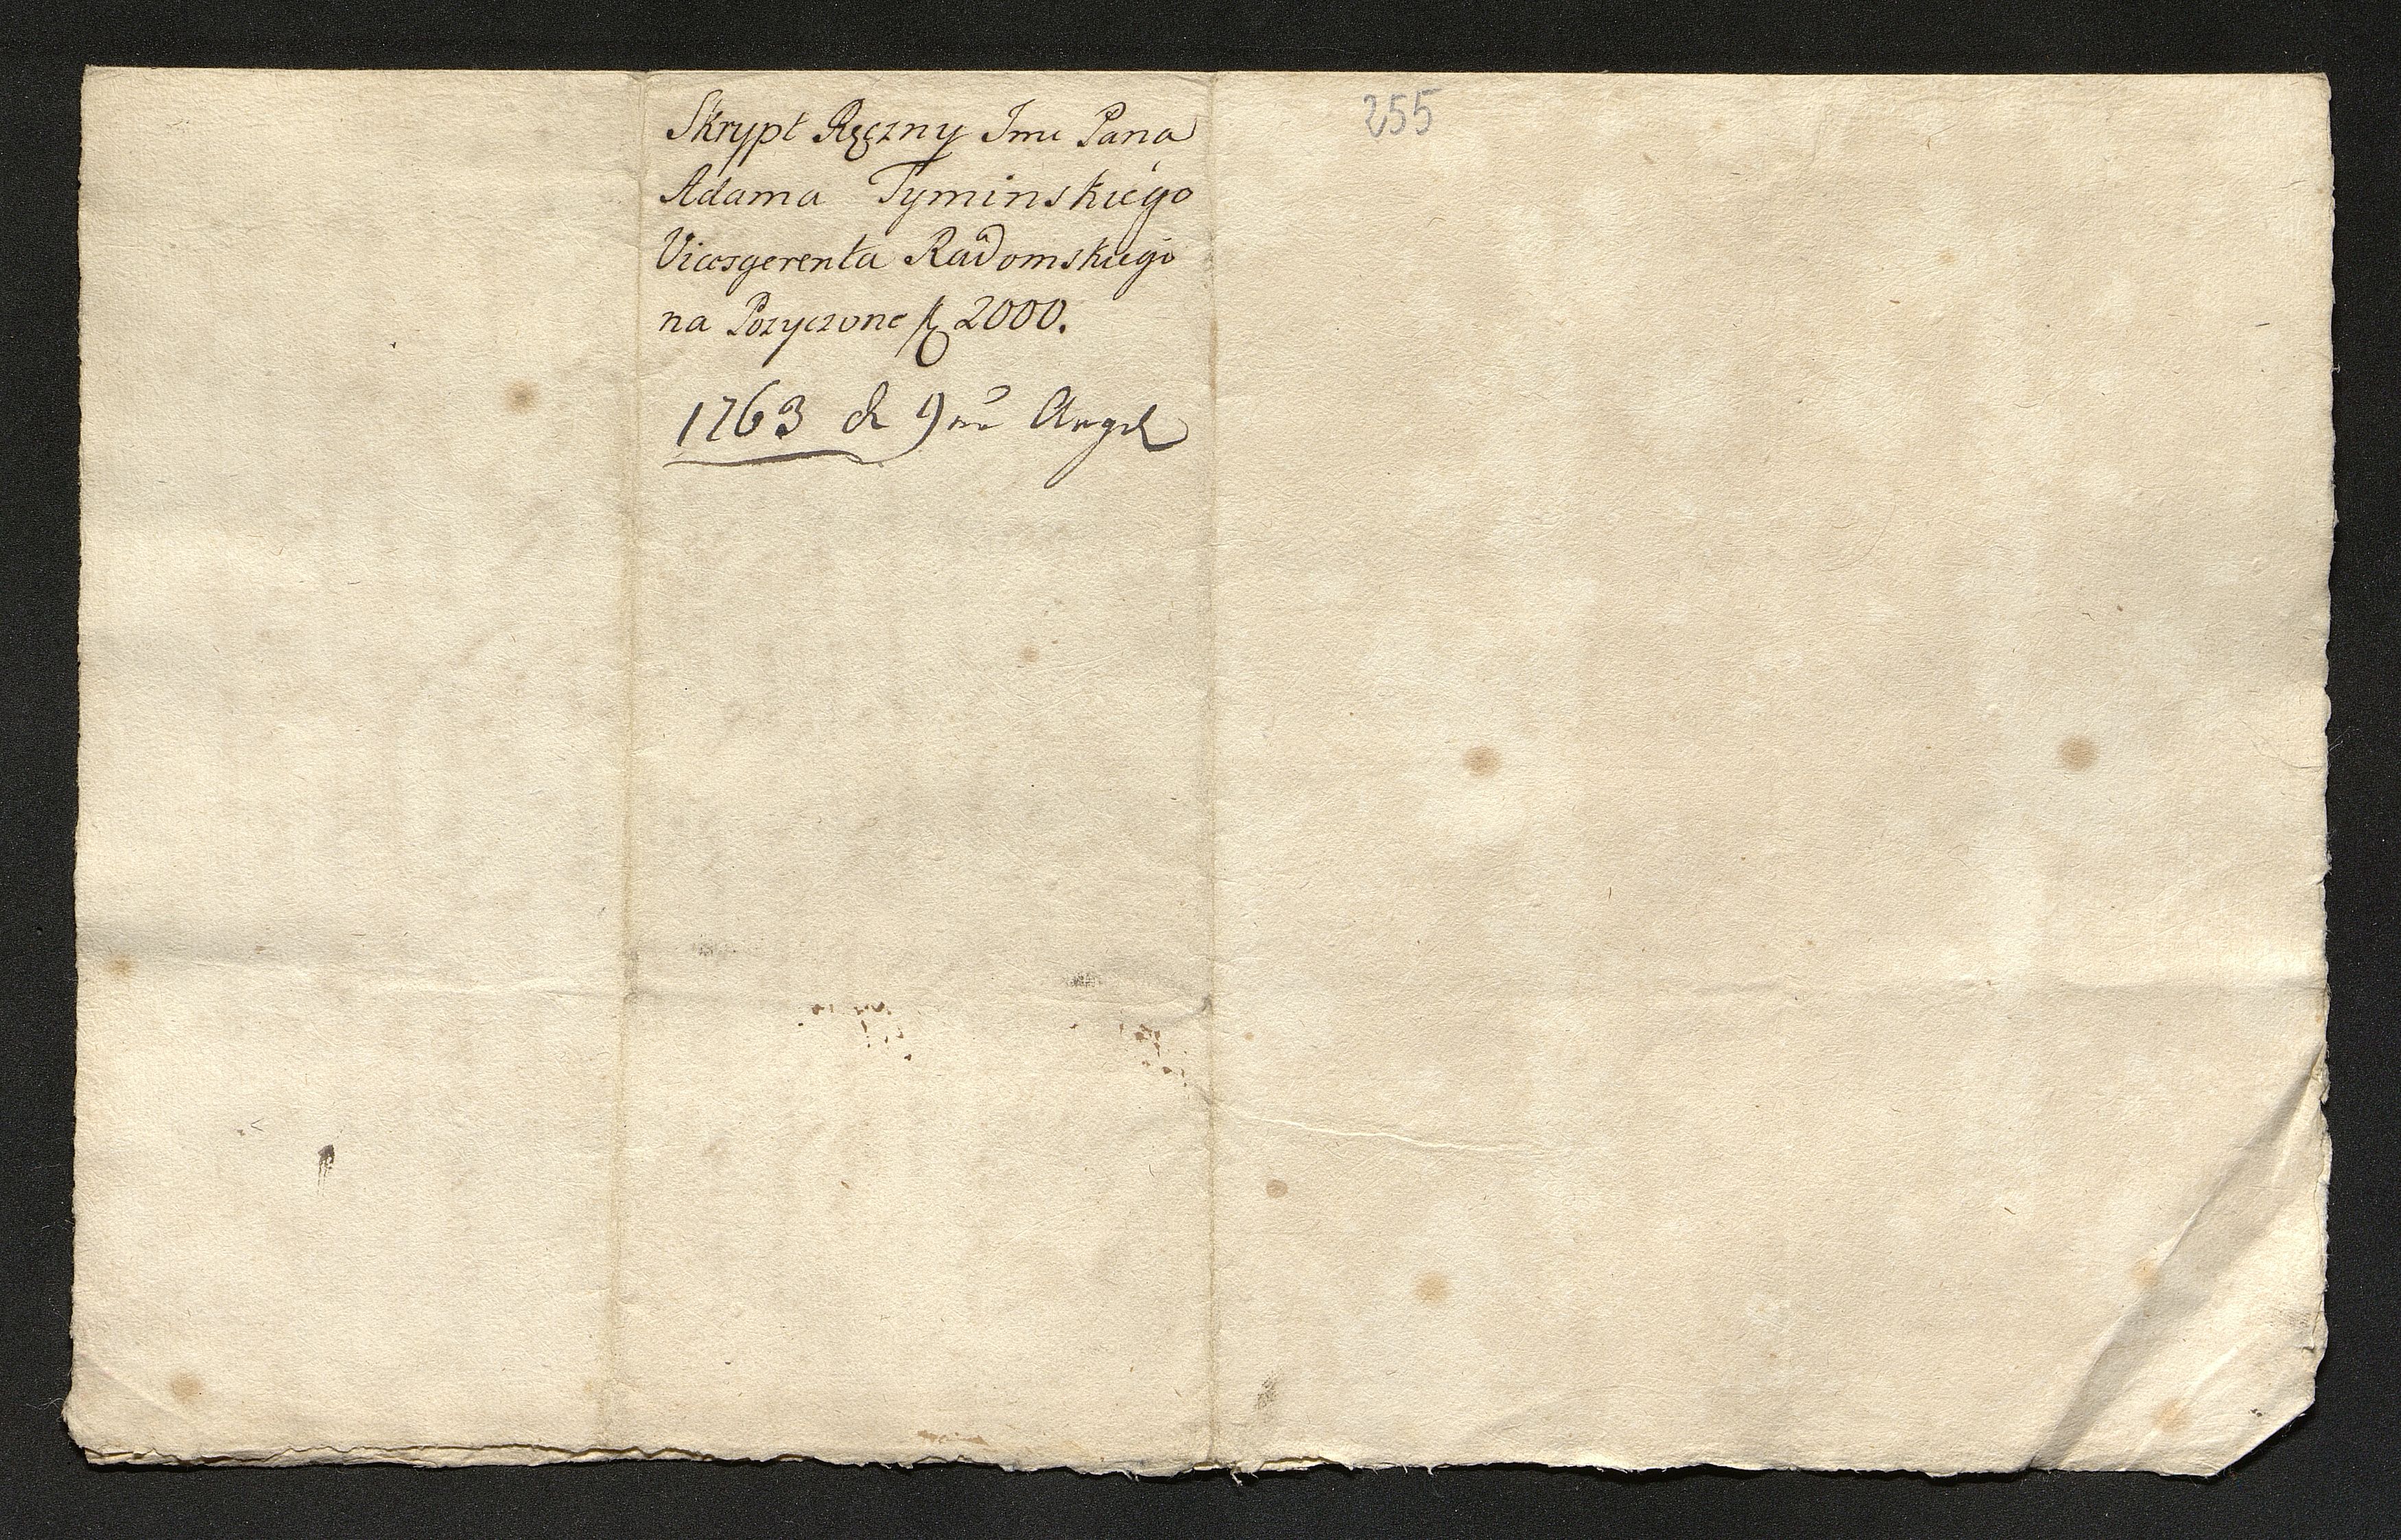 Skrypt Ręczny Jmc Pana
Adama Tyminskiego
Vicesgerenta Radomskiego
na Pozyczone 2000.
1763
255